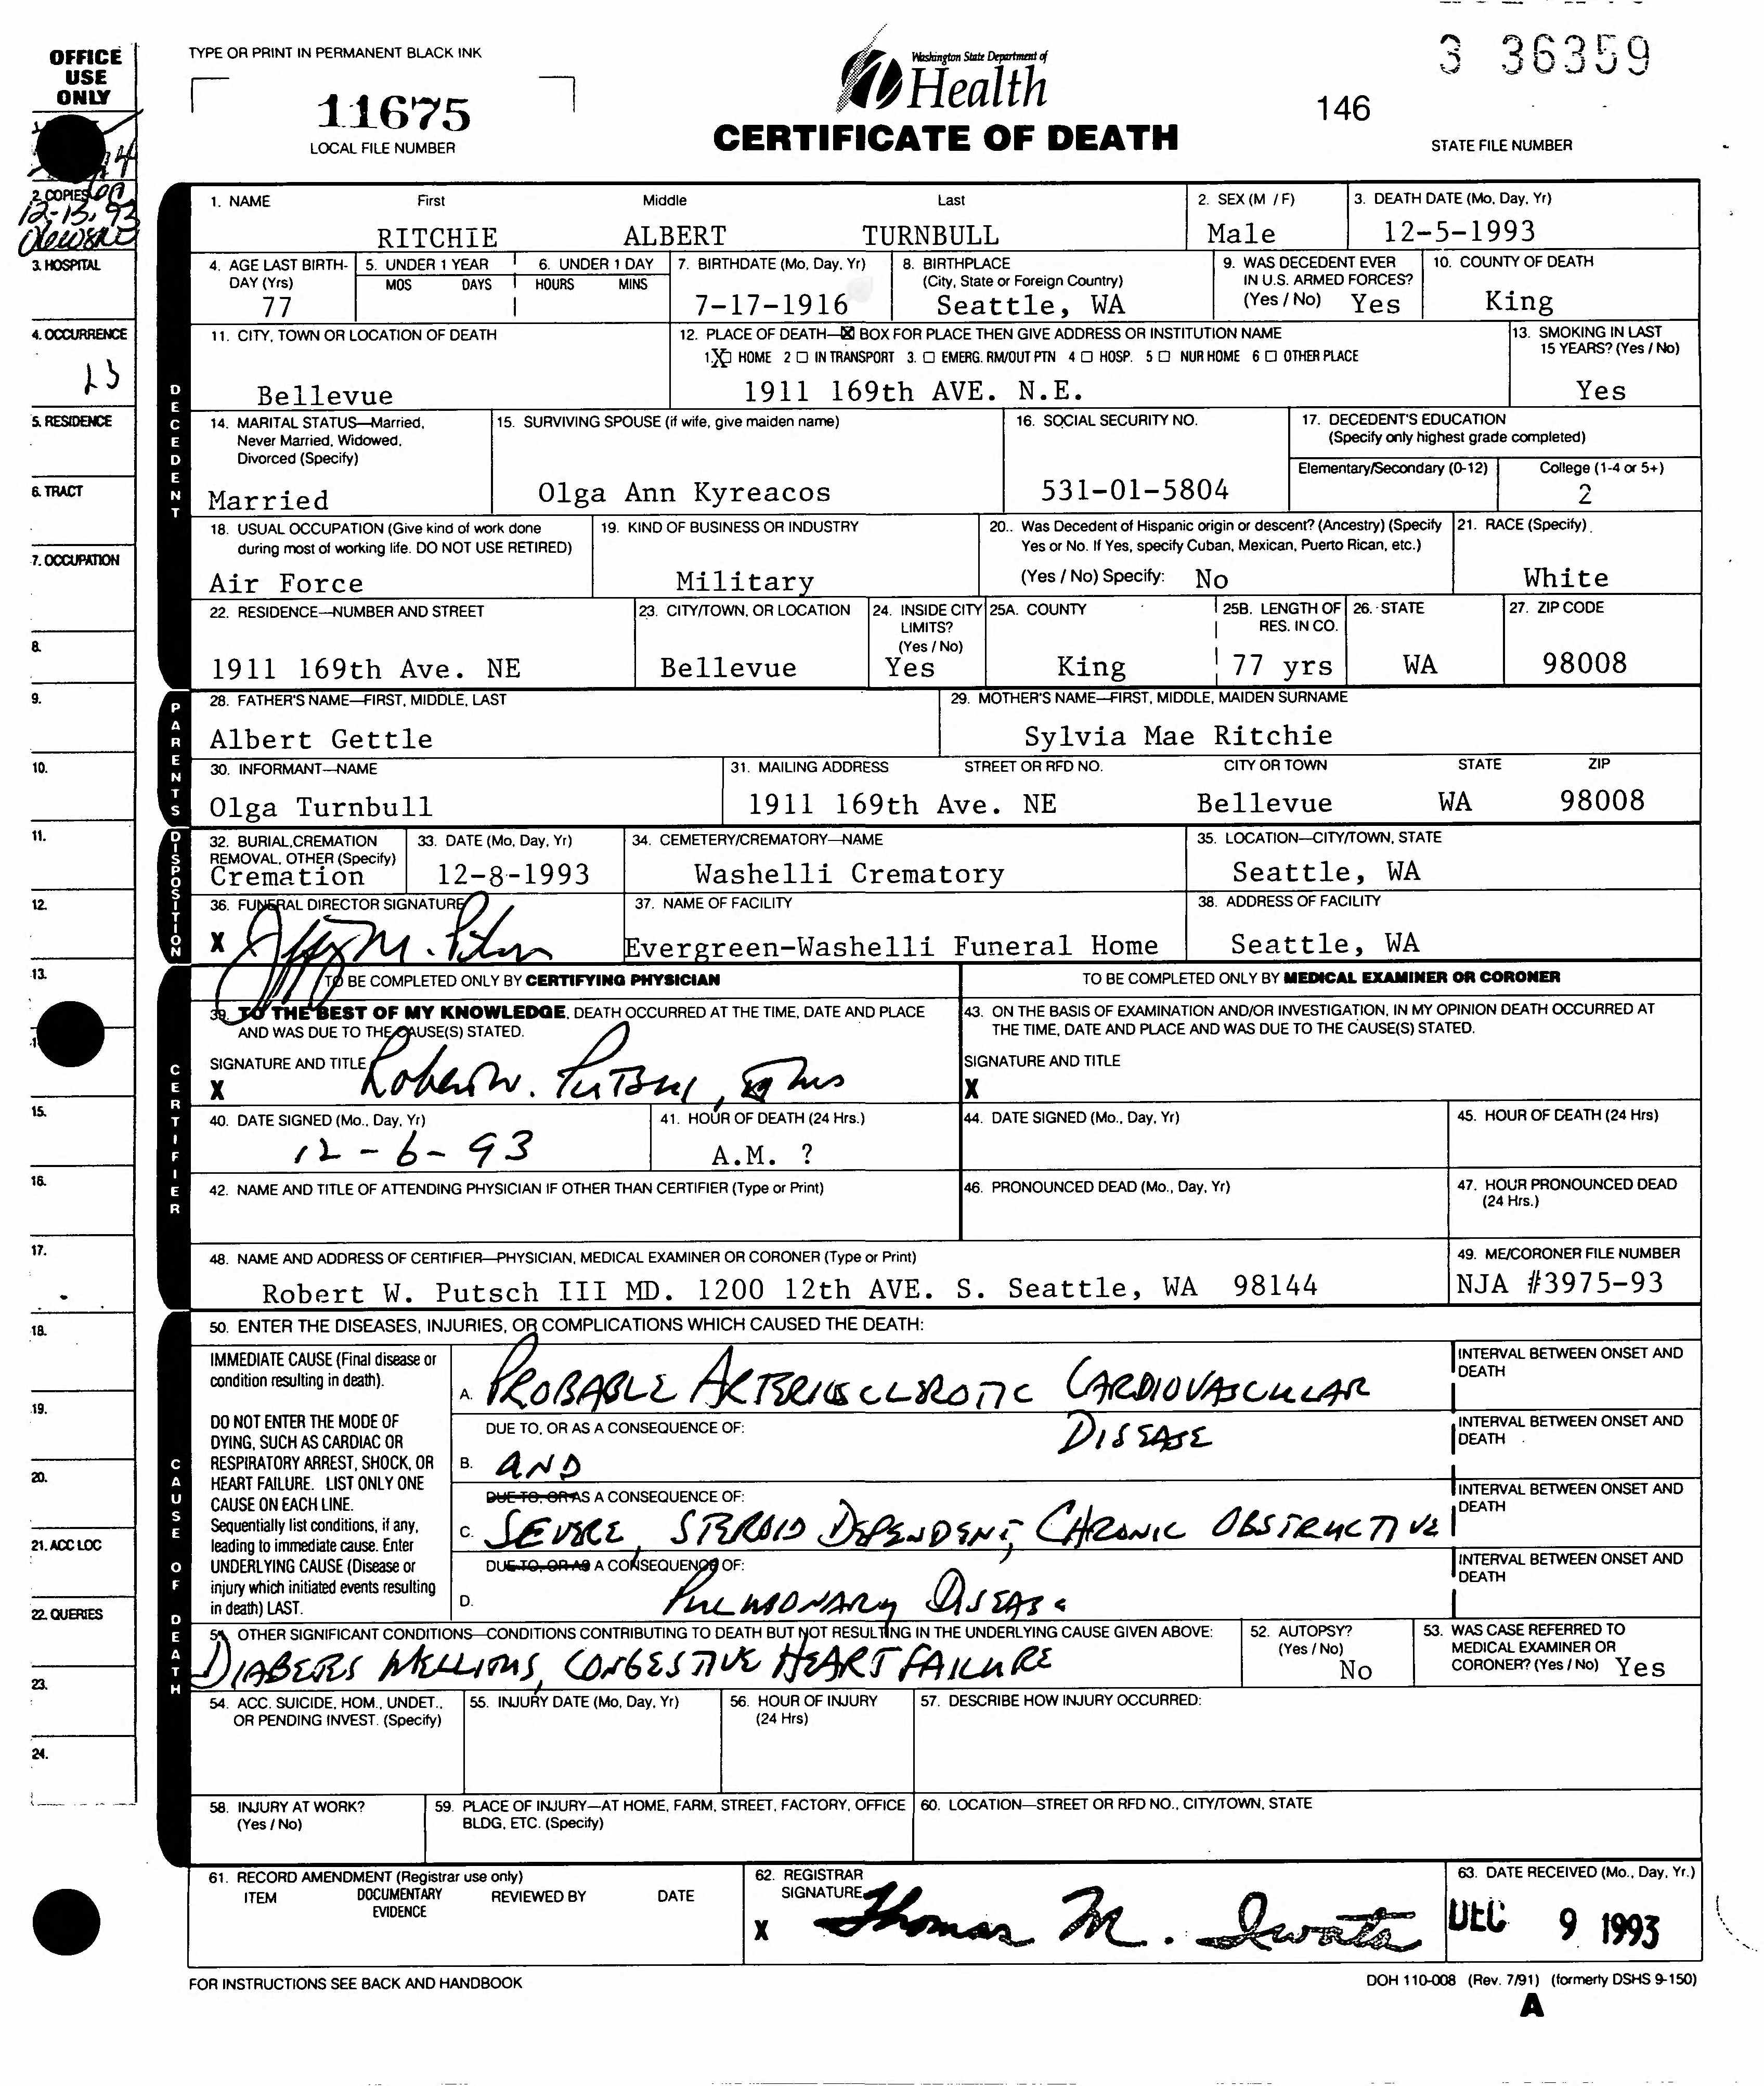 OFFICE
USE
ONLY
TYPE OR PRINT IN PERMANENT BLACK INK
11675
LOCAL FILE NUMBER
Washington State Department of
Health
CERTIFICATE OF DEATH
146
3 36359
STATE FILE NUMBER
2. COPIES
12-13-93
3. HOSPITAL
4. OCCURRENCE
5. RESIDENCE
6. TRACT
7. OCCUPATION
8.
9.
10.
11.
12.
13.
15.
16.
17.
18.
19.
20.
21. ACC LOC
22. QUERIES
23.
24.
DECEDENT
1. NAME First Middle Last
RITCHIE ALBERT TURNBULL
2. SEX (M / F)
Male
3. DEATH DATE (Mo, Day, Yr)
12-5-1993
4. AGE LAST BIRTH-
DAY (Yrs)
77
5. UNDER 1 YEAR
MOS DAYS
6. UNDER 1 DAY
HOURS MINS
7. BIRTHDATE (Mo, Day, Yr)
7-17-1916
8. BIRTHPLACE
(City, State or Foreign Country)
Seattle, WA
9. WAS DECEDENT EVER
IN U.S. ARMED FORCES?
(Yes / No) Yes
10. COUNTY OF DEATH
King
11. CITY, TOWN OR LOCATION OF DEATH
Bellevue
12. PLACE OF DEATH—☒ BOX FOR PLACE THEN GIVE ADDRESS OR INSTITUTION NAME
1. ☒ HOME 2 ☐ IN TRANSPORT 3. ☐ EMERG. RM/OUT PTN 4 ☐ HOSP. 5 ☐ NUR HOME 6 ☐ OTHER PLACE
1911 169th AVE. N.E.
13. SMOKING IN LAST
15 YEARS? (Yes / No)
Yes
14. MARITAL STATUS—Married,
Never Married, Widowed,
Divorced (Specify)
Married
15. SURVIVING SPOUSE (if wife, give maiden name)
Olga Ann Kyreacos
16. SOCIAL SECURITY NO.
531-01-5804
17. DECEDENT'S EDUCATION
(Specify only highest grade completed)
Elementary/Secondary (0-12) College (1-4 or 5+)
2
18. USUAL OCCUPATION (Give kind of work done
during most of working life. DO NOT USE RETIRED)
Air Force
19. KIND OF BUSINESS OR INDUSTRY
Military
20.. Was Decedent of Hispanic origin or descent? (Ancestry) (Specify
Yes or No. If Yes, specify Cuban, Mexican, Puerto Rican, etc.)
(Yes / No) Specify: No
21. RACE (Specify)
White
22. RESIDENCE—NUMBER AND STREET
1911 169th Ave. NE
23. CITY/TOWN, OR LOCATION
Bellevue
24. INSIDE CITY
LIMITS?
(Yes / No)
Yes
25A. COUNTY
King
25B. LENGTH OF
RES. IN CO.
77 yrs
26. STATE
WA
27. ZIP CODE
98008
PARENTS
28. FATHER'S NAME—FIRST, MIDDLE, LAST
Albert Gettle
29. MOTHER'S NAME—FIRST, MIDDLE, MAIDEN SURNAME
Sylvia Mae Ritchie
30. INFORMANT—NAME
Olga Turnbull
31. MAILING ADDRESS STREET OR RFD NO. CITY OR TOWN STATE ZIP
1911 169th Ave. NE Bellevue WA 98008
DISPOSITION
32. BURIAL,CREMATION
REMOVAL, OTHER (Specify)
Cremation
33. DATE (Mo, Day, Yr)
12-8-1993
34. CEMETERY/CREMATORY—NAME
Washelli Crematory
35. LOCATION—CITY/TOWN, STATE
Seattle, WA
36. FUNERAL DIRECTOR SIGNATURE
X
37. NAME OF FACILITY
Evergreen-Washelli Funeral Home
38. ADDRESS OF FACILITY
Seattle, WA
CERTIFIER
TO BE COMPLETED ONLY BY CERTIFYING PHYSICIAN
39. TO THE BEST OF MY KNOWLEDGE, DEATH OCCURRED AT THE TIME, DATE AND PLACE
AND WAS DUE TO THE CAUSE(S) STATED.
SIGNATURE AND TITLE
X Robert W. Putsch
40. DATE SIGNED (Mo., Day, Yr)
12-6-93
41. HOUR OF DEATH (24 Hrs.)
A.M. ?
42. NAME AND TITLE OF ATTENDING PHYSICIAN IF OTHER THAN CERTIFIER (Type or Print)
TO BE COMPLETED ONLY BY MEDICAL EXAMINER OR CORONER
43. ON THE BASIS OF EXAMINATION AND/OR INVESTIGATION, IN MY OPINION DEATH OCCURRED AT
THE TIME, DATE AND PLACE AND WAS DUE TO THE CAUSE(S) STATED.
SIGNATURE AND TITLE
X
44. DATE SIGNED (Mo., Day, Yr)
45. HOUR OF DEATH (24 Hrs)
46. PRONOUNCED DEAD (Mo., Day, Yr)
47. HOUR PRONOUNCED DEAD
(24 Hrs.)
48. NAME AND ADDRESS OF CERTIFIER—PHYSICIAN, MEDICAL EXAMINER OR CORONER (Type or Print)
Robert W. Putsch III MD. 1200 12th AVE. S. Seattle, WA 98144
49. ME/CORONER FILE NUMBER
NJA #3975-93
CAUSE OF DEATH
50. ENTER THE DISEASES, INJURIES, OR COMPLICATIONS WHICH CAUSED THE DEATH:
IMMEDIATE CAUSE (Final disease or
condition resulting in death).
DO NOT ENTER THE MODE OF
DYING, SUCH AS CARDIAC OR
RESPIRATORY ARREST, SHOCK, OR
HEART FAILURE. LIST ONLY ONE
CAUSE ON EACH LINE.
Sequentially list conditions, if any,
leading to immediate cause. Enter
UNDERLYING CAUSE (Disease or
injury which initiated events resulting
in death) LAST.
A. PROBABLE ARTERIOSCLEROTIC CARDIOVASCULAR
INTERVAL BETWEEN ONSET AND
DEATH
DUE TO, OR AS A CONSEQUENCE OF: DISEASE
B. AND
INTERVAL BETWEEN ONSET AND
DEATH
DUE TO, OR AS A CONSEQUENCE OF:
C. SEVERE, STEROID DEPENDENT, CHRONIC OBSTRUCTIVE
INTERVAL BETWEEN ONSET AND
DEATH
DUE TO, OR AS A CONSEQUENCE OF:
D. PULMONARY DISEASE
INTERVAL BETWEEN ONSET AND
DEATH
51. OTHER SIGNIFICANT CONDITIONS—CONDITIONS CONTRIBUTING TO DEATH BUT NOT RESULTING IN THE UNDERLYING CAUSE GIVEN ABOVE:
DIABETES MELLITUS, CONGESTIVE HEART FAILURE
52. AUTOPSY?
(Yes / No)
No
53. WAS CASE REFERRED TO
MEDICAL EXAMINER OR
CORONER? (Yes / No) Yes
54. ACC. SUICIDE, HOM., UNDET.,
OR PENDING INVEST. (Specify)
55. INJURY DATE (Mo, Day, Yr)
56. HOUR OF INJURY
(24 Hrs)
57. DESCRIBE HOW INJURY OCCURRED:
58. INJURY AT WORK?
(Yes / No)
59. PLACE OF INJURY—AT HOME, FARM, STREET, FACTORY, OFFICE
BLDG, ETC. (Specify)
60. LOCATION—STREET OR RFD NO., CITY/TOWN, STATE
61. RECORD AMENDMENT (Registrar use only)
ITEM DOCUMENTARY EVIDENCE REVIEWED BY DATE
62. REGISTRAR
SIGNATURE
X Thomas M. Iwata
63. DATE RECEIVED (Mo., Day, Yr.)
DEC 9 1993
FOR INSTRUCTIONS SEE BACK AND HANDBOOK
DOH 110-008 (Rev. 7/91) (formerly DSHS 9-150)
A